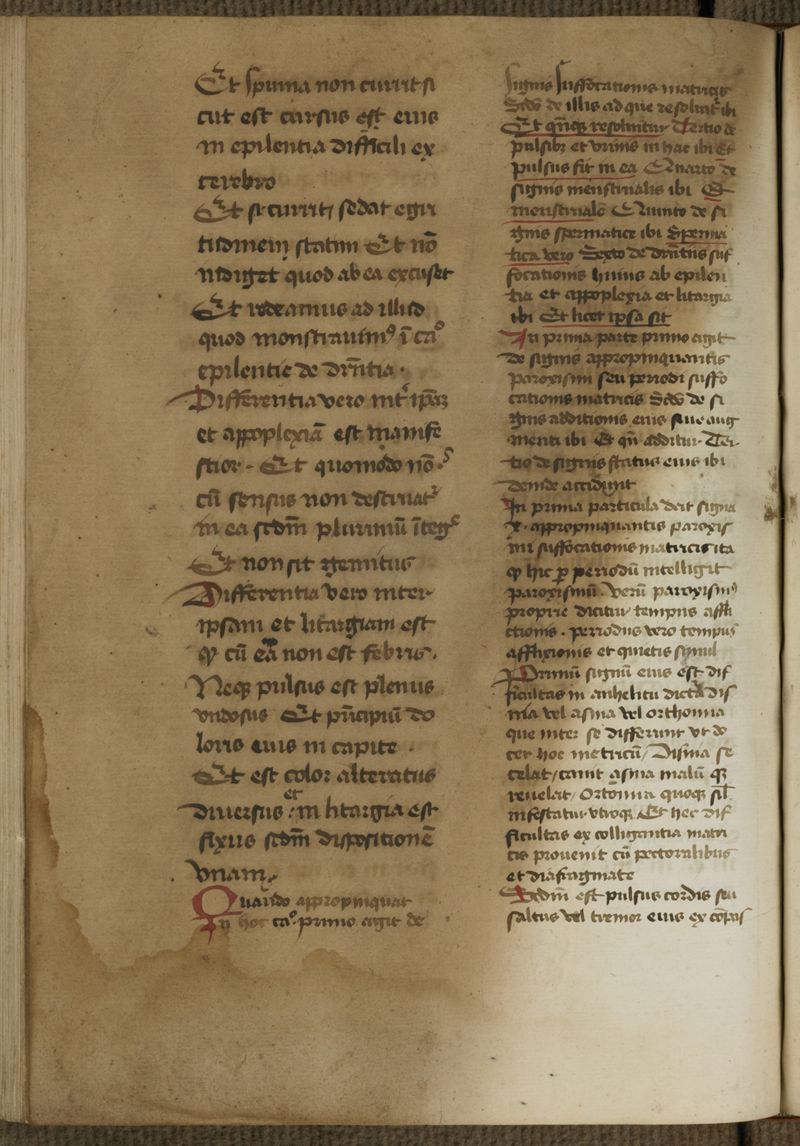 Et spuma non currit si
cut est cursus est eius
in epilentia difficili ex
cerebro
Et si currit sedat egri
tudinem statim Et nō
indiget quod ab ea excuset᷑
Et redeamus ad illud
quod monstrauimꝰ ī caᵒ
epilentie de dr̄ntia .
Differentia vero int' ipā
et appoplexiā est manife
stior . Et quomodo nō
cū sensus non destruat᷑
in ea scdm̄ plurimū īteg
Et non sit gemitus
Differentia vero inter
ipsam et litargiam est
ꝙ cū ea non est febris .
Neqꝫ pulsus est plenus
vndosus Et pn̄cipiū do
loris eius in capite .
Et est color alteratus
et
diuersus : in litargia est
fixus scdm̄ dispositionē
vnam .
Quando appropinquat
In hoc caᵒ. primo agit de
signis suffocationis matricis
Scdo de illis ad que resoluit᷑ ibi
Et qn̄qꝫ resoluitur Tertio de
pulsibꝫ et vrinis in hac ibi Et
pulsus fit in ea Quarto de
signis menstrualis ibi Et
menstruale Quinto de si
gnis spermatice ibi Sperma
tica vero Sexto de dr̄ntiis suf
focationis huius ab epilen
tia et appoplexia et litargia
ibi Et licet ipsa sit
In prima parte primo agit
de signis appropinquantis
paroxismi seu periodi suffo
cationis matricis Scdo de si
gnis additionis eius siue aug
menti ibi Et qn̄ additur Ter
tio de signis status eius ibi
deinde accidunt
In prima particula dat signa
x . appropinquantis paroxis
mi suffocationis matricis ita
ꝙ hic ꝑ periodū intelligit
paroxismū . Verū paroxismꝰ
proprie dicitur tempus affli
ctionis . periodus vero tempus
afflixionis et quietis simul
Primū signū eius est dif
ficultas in anhelitu dicta dis
nia vel asma vel orthomia
que inter se differunt vt do
cet hoc metricū / Disma se
celat / canit asma malū qꝫ
reuelat / Ortomia quoqꝫ sil̄
infestatur vtroqꝫ Et hec dif
ficultas ex colligantia matri
cis prouenit cū pectoralibus
et diafragmate
Scdm̄ est pulsus cordis seu
saltus vel tremor eius ex cōpas